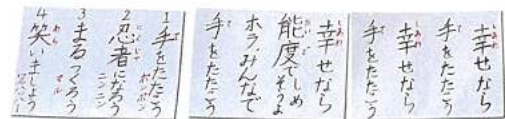 幸せなら
手をたたこう
幸せなら
手をたたこう
幸せなら
態度でしめそうよ
ホラ、みんなで
手をたたこう
1 手をたたこう
ポンポン
2 忍者になろう
ニンニン
3 まるつくろう
マル
4 笑いましょう